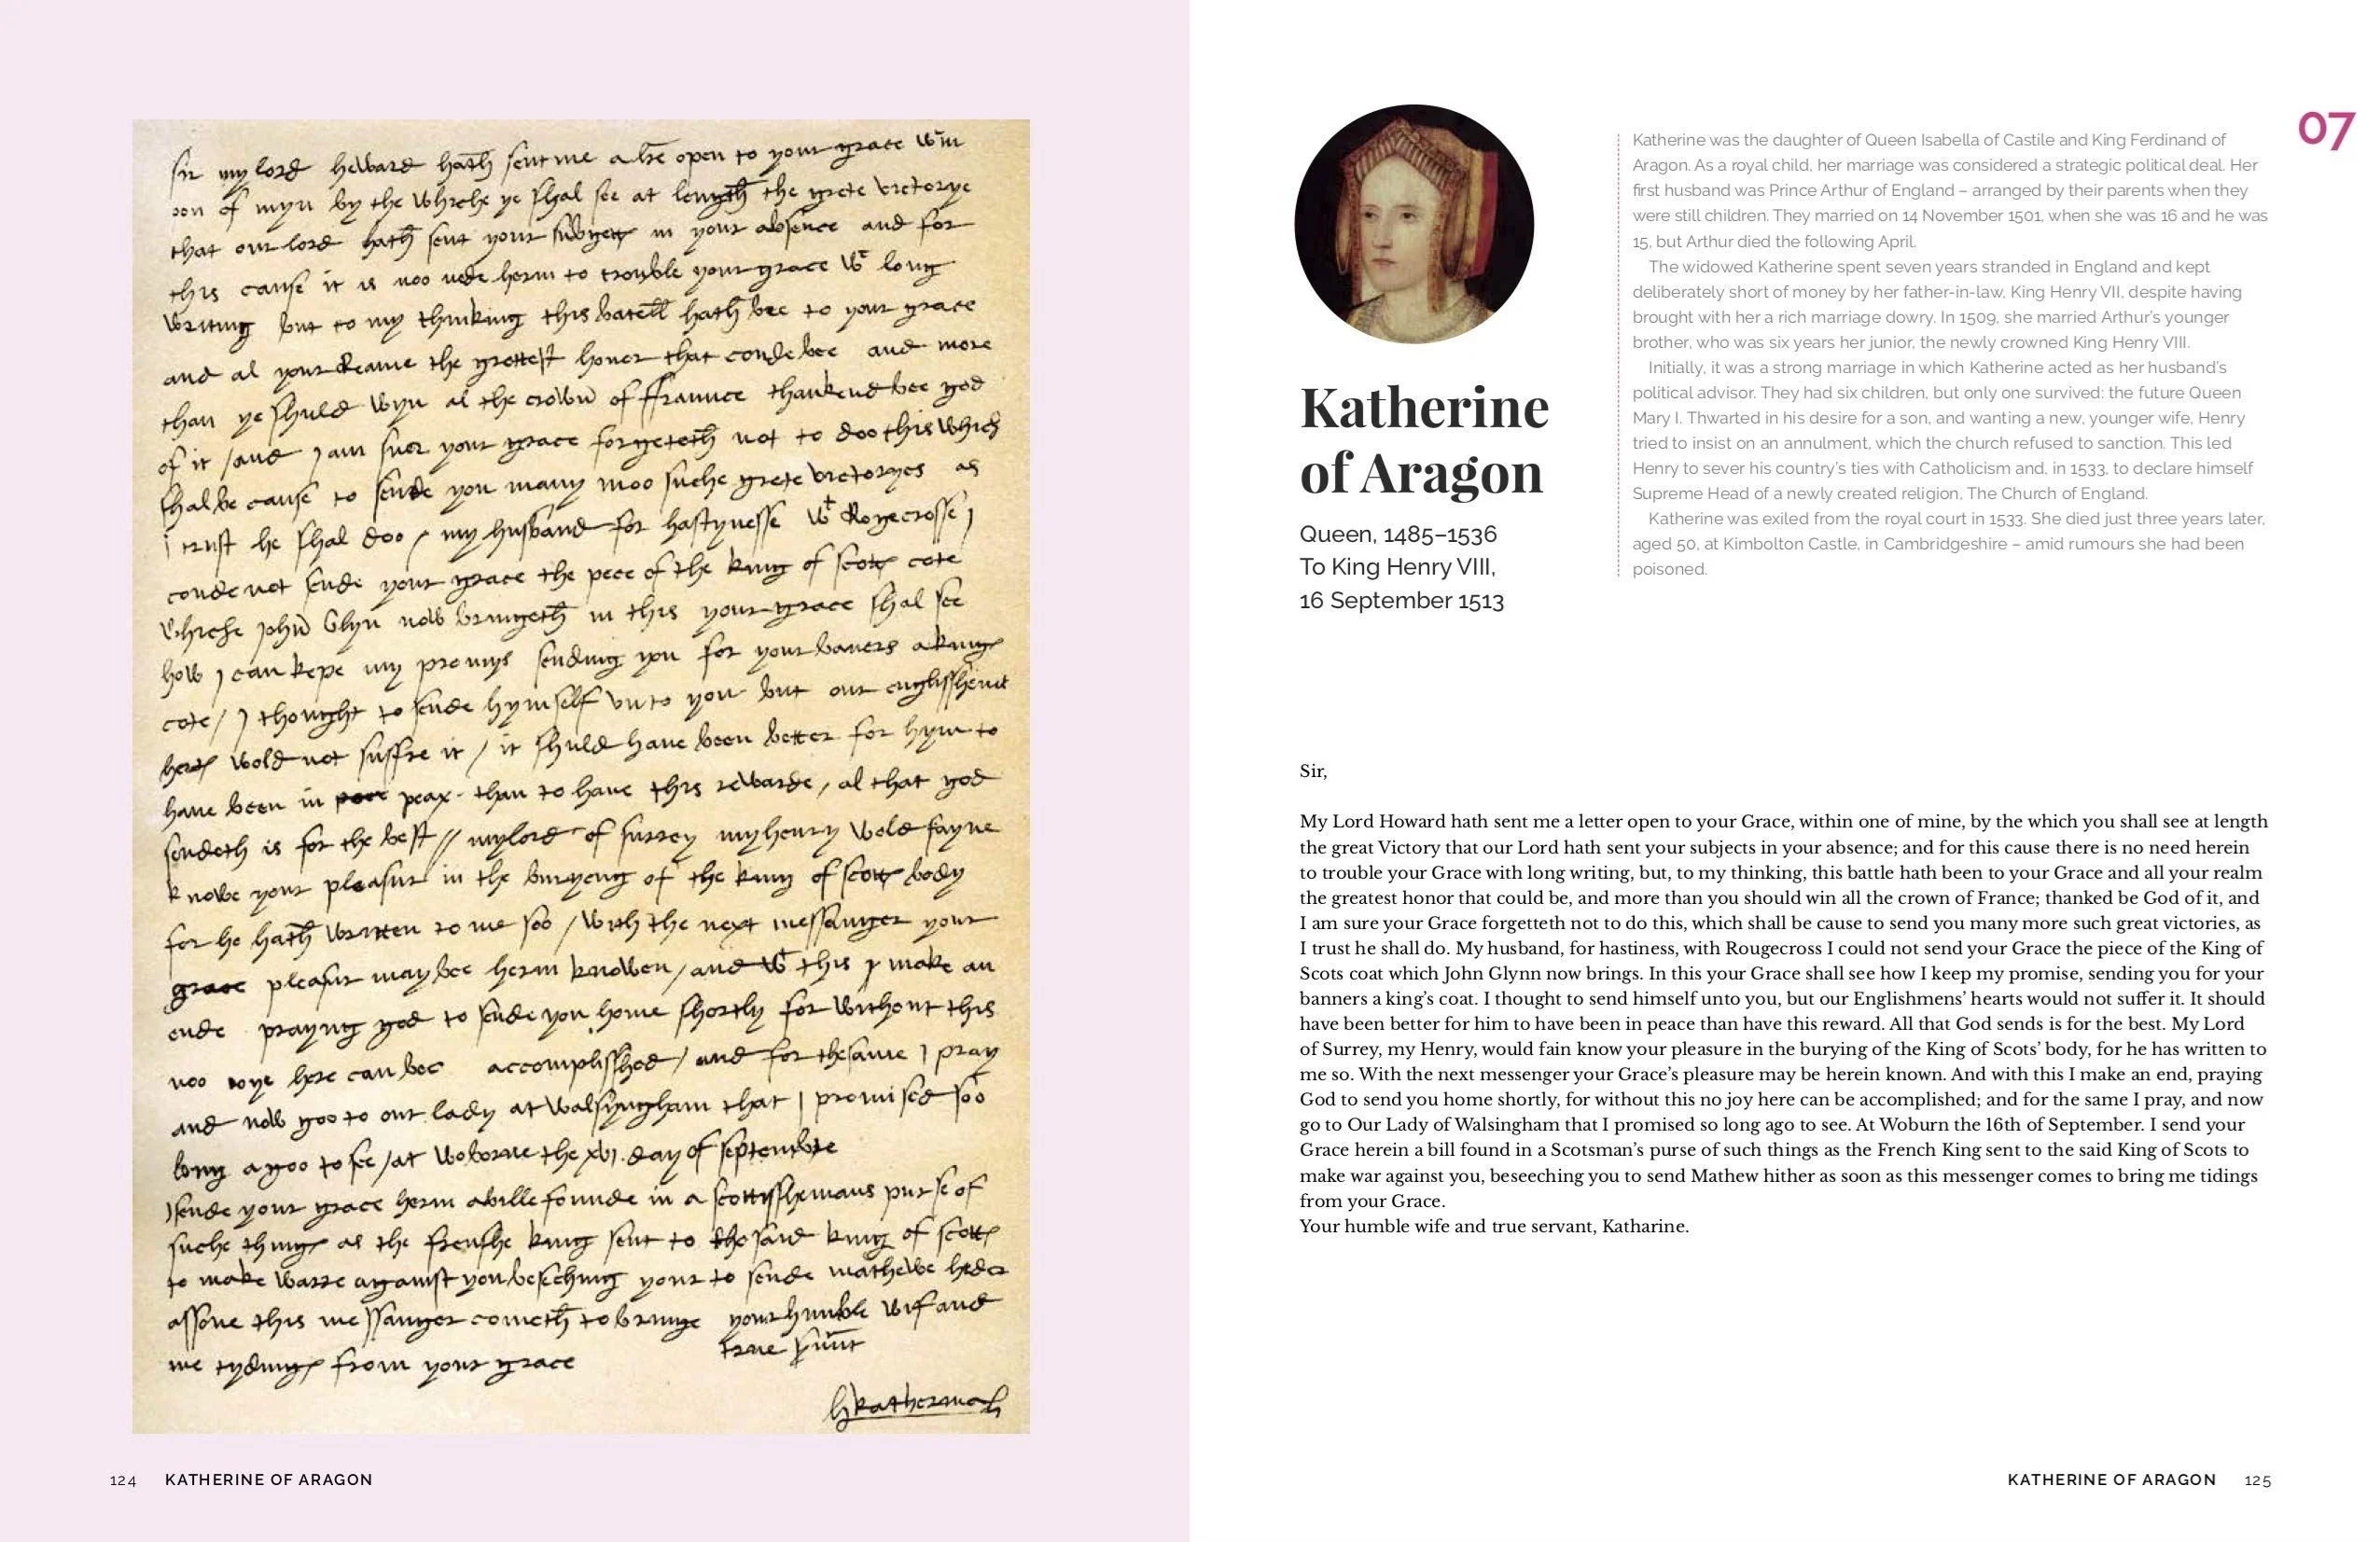 Sir my lord howard hath sent me a lre open to your grace win
oon of myn by the whiche ye shal see at length the grete victorye
that our lord hath sent your subgetts in your absence and for
this cause it is noo nede herin to trouble your grace wt long
writing but to my thinking this batell hath bee to your grace
and al your Reame the grettest honor that coude bee and more
than ye shuld wyn al the crown of ffraunce thankend bee god
of it / and I am suer your grace forgeteth not to doo this which
shal be cause to sende you many moo suche grete victoryes as
i trust he shal doo / my husband for hastynesse wt Rogecrosse I
coude not sende your grace the pece of the king of scotts cote
whiche John Glyn now bringeth in this your grace shal see
how I can kepe my promys sending you for your baners a kings
cote / I thought to sende hymself vnto you but our englisshemens
herts wold not suffre it / it shuld have been better for hym to
have been in peax than to have this rewarde / al that god
sendeth is for the best // my lord of surrey my henry wold fayne
knowe your pleasur in the buryeng of the king of scotts body
for he hath written to me soo / with the next messanger your
grace pleasur may bee herin knowen / and wt this I make an
ende praying god to sende you home shortly for without this
noo joye here can bee accomplisshed / and for the same I pray
and now goo to our lady at walsyngham that I promised soo
long agoo to see / at woborne the xvi. day of septembre
I sende your grace herin a bille founde in a scottisshemans purse of
suche things as the frenshe king sent to the said king of scotts
to make warre against you beseching your to sende mathewe heder
assone this messanger cometh to bringe your humble wif and
me tydings from your grace true s'unt
Katherina
124 KATHERINE OF ARAGON
07
Katherine
of Aragon
Queen, 1485–1536
To King Henry VIII,
16 September 1513
Katherine was the daughter of Queen Isabella of Castile and King Ferdinand of
Aragon. As a royal child, her marriage was considered a strategic political deal. Her
first husband was Prince Arthur of England – arranged by their parents when they
were still children. They married on 14 November 1501, when she was 16 and he was
15, but Arthur died the following April.
The widowed Katherine spent seven years stranded in England and kept
deliberately short of money by her father-in-law, King Henry VII, despite having
brought with her a rich marriage dowry. In 1509, she married Arthur's younger
brother, who was six years her junior, the newly crowned King Henry VIII.
Initially, it was a strong marriage in which Katherine acted as her husband's
political advisor. They had six children, but only one survived: the future Queen
Mary I. Thwarted in his desire for a son, and wanting a new, younger wife, Henry
tried to insist on an annulment, which the church refused to sanction. This led
Henry to sever his country's ties with Catholicism and, in 1533, to declare himself
Supreme Head of a newly created religion, The Church of England.
Katherine was exiled from the royal court in 1533. She died just three years later,
aged 50, at Kimbolton Castle, in Cambridgeshire – amid rumours she had been
poisoned.
Sir,
My Lord Howard hath sent me a letter open to your Grace, within one of mine, by the which you shall see at length
the great Victory that our Lord hath sent your subjects in your absence; and for this cause there is no need herein
to trouble your Grace with long writing, but, to my thinking, this battle hath been to your Grace and all your realm
the greatest honor that could be, and more than you should win all the crown of France; thanked be God of it, and
I am sure your Grace forgetteth not to do this, which shall be cause to send you many more such great victories, as
I trust he shall do. My husband, for hastiness, with Rougecross I could not send your Grace the piece of the King of
Scots coat which John Glynn now brings. In this your Grace shall see how I keep my promise, sending you for your
banners a king's coat. I thought to send himself unto you, but our Englishmens' hearts would not suffer it. It should
have been better for him to have been in peace than have this reward. All that God sends is for the best. My Lord
of Surrey, my Henry, would fain know your pleasure in the burying of the King of Scots' body, for he has written to
me so. With the next messenger your Grace's pleasure may be herein known. And with this I make an end, praying
God to send you home shortly, for without this no joy here can be accomplished; and for the same I pray, and now
go to Our Lady of Walsingham that I promised so long ago to see. At Woburn the 16th of September. I send your
Grace herein a bill found in a Scotsman's purse of such things as the French King sent to the said King of Scots to
make war against you, beseeching you to send Mathew hither as soon as this messenger comes to bring me tidings
from your Grace.
Your humble wife and true servant, Katharine.
KATHERINE OF ARAGON 125